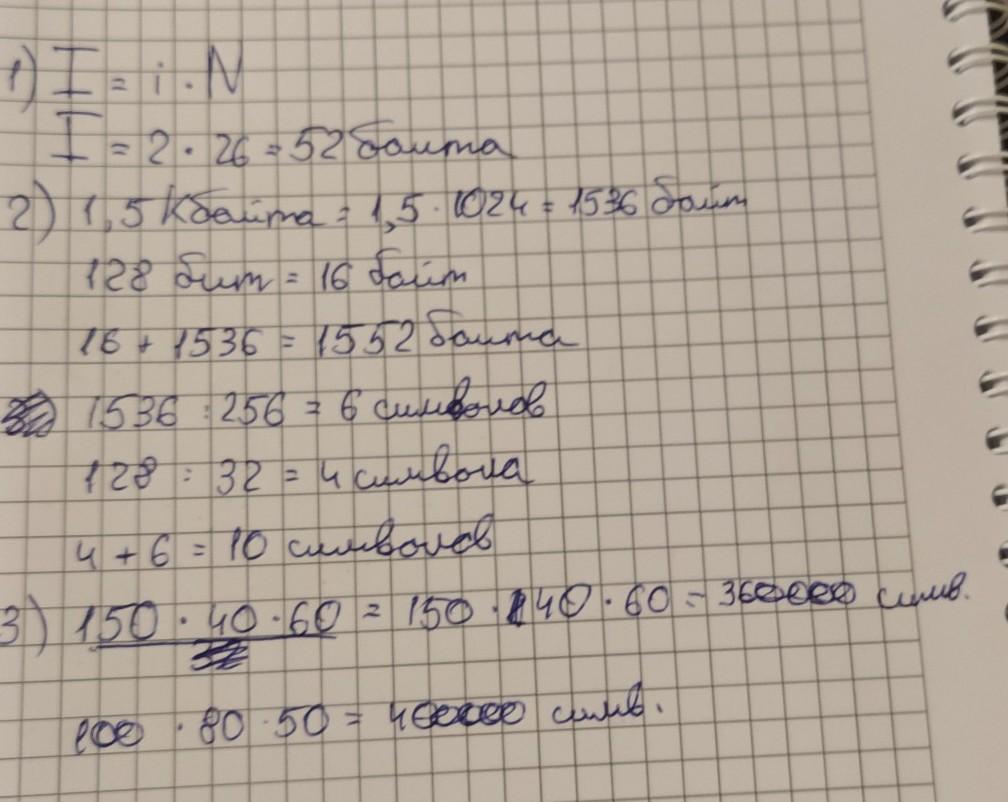 1) I = i · N
I = 2 · 26 = 52 байта
2) 1,5 Кбайта = 1,5 · 1024 = 1536 байт
128 бит = 16 байт
16 + 1536 = 1552 байта
1536 : 256 = 6 символов
128 : 32 = 4 символа
4 + 6 = 10 символов
3) 150 · 40 · 60 = 150 · 40 · 60 = 360000 симв.
100 · 80 · 50 = 400000 симв.